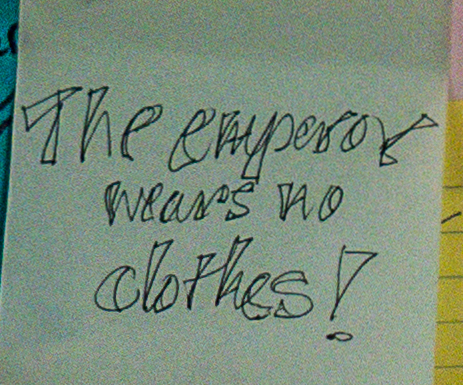 The emperor
wears no
clothes!